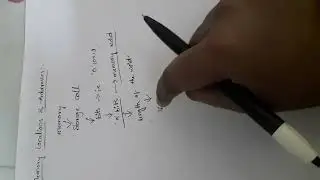 Memory Locations & Addresses:
memory
↓
storage cell
↓
bits → ie '0' or 1
↓
'n' bits → memory word
↓
length of the word
↓